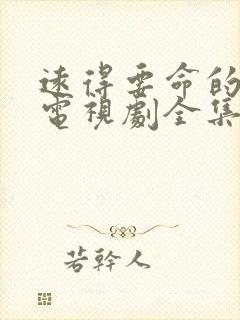 遠得要命的
電視劇全集
若幹人